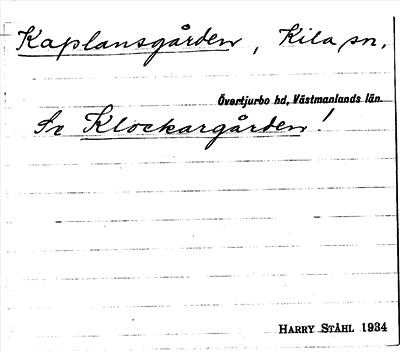 Kaplansgården, Kila sn.
Övertjurbo hd, Västmanlands län.
Se Klockargården!
HARRY STÅHL 1934